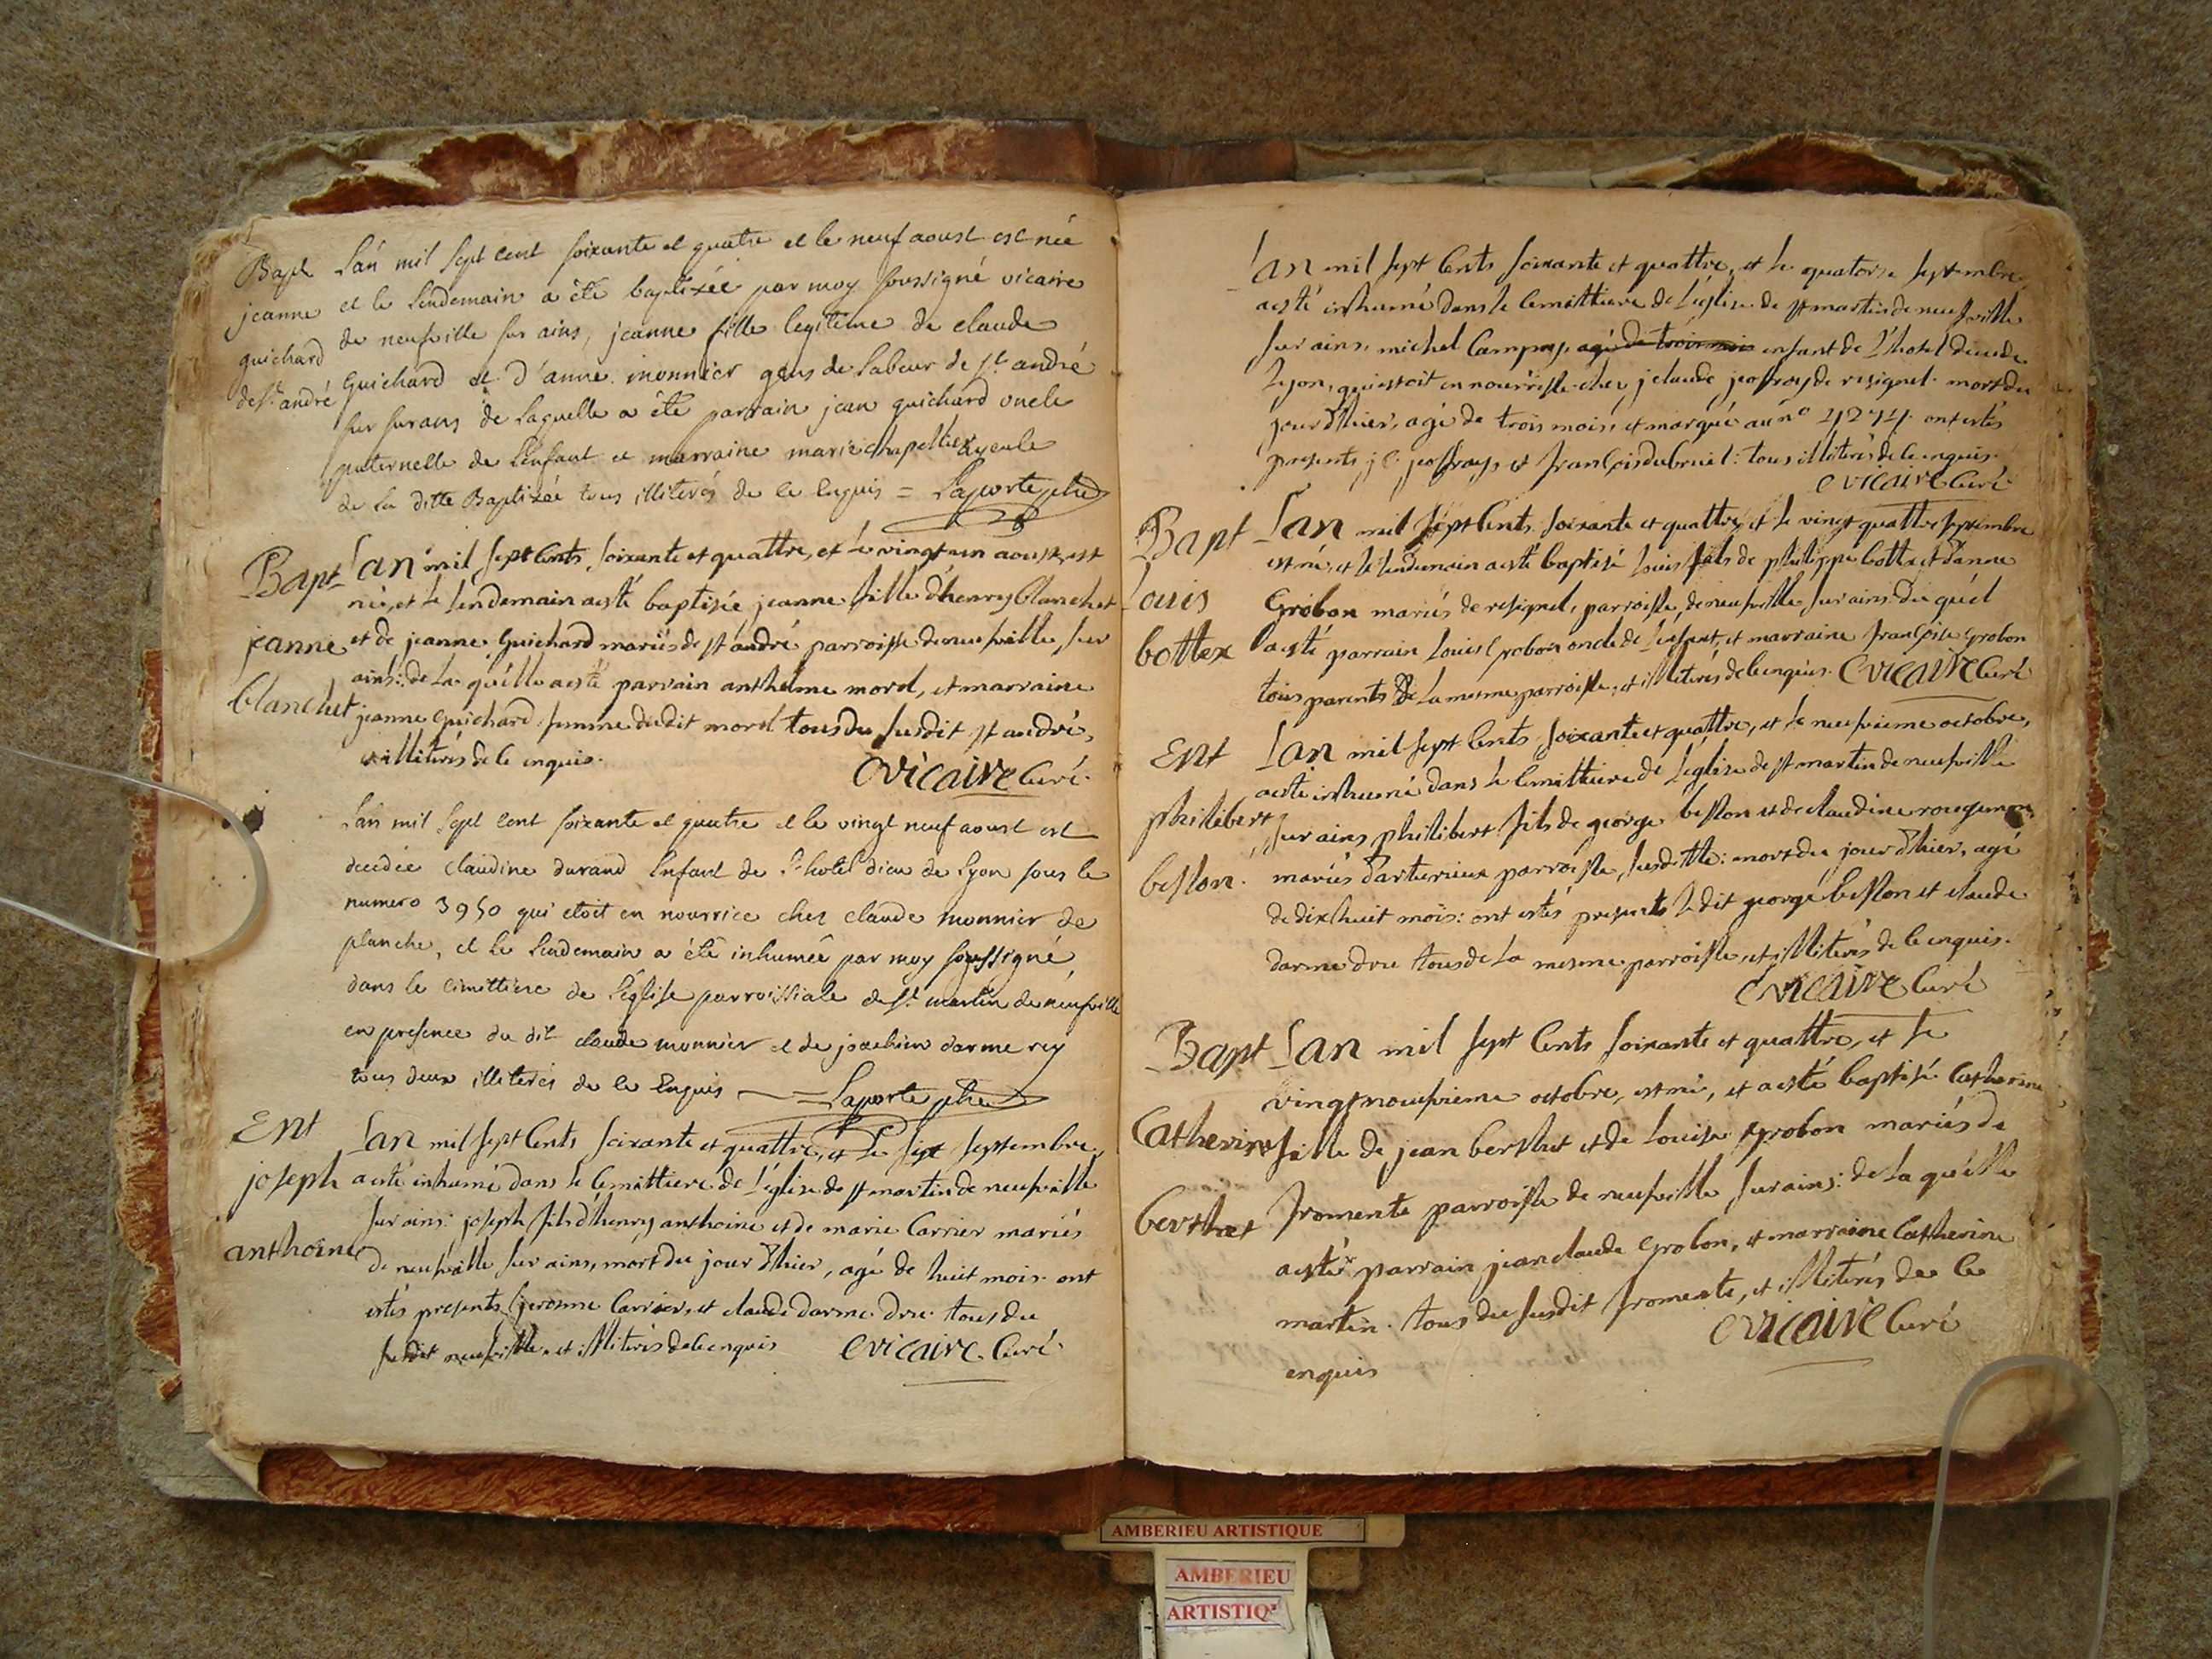 Bapt
jeanne
guichard
de st andré
L'an mil sept cent soixante et quatre et le neuf aoust est née
et le lendemain a été baptizée par moy soussigné vicaire
de neufville sur ains, jeanne fille legitime de claude
Guichard et d'anne monnier gens de labeur de st andré
sur surans de laquelle a été parrain jean guichard oncle
paternelle de l'enfant et marraine marie chapellier ayeule
de la ditte Baptizée tous illiterés de ce enquis = Laporte ptre
Bapt
jeanne
blanchet
Lan mil sept cents soixante et quattre, et le vingt un aoust, est
née, et le lendemain a esté baptisée jeanne fille d'henry blanchet
et de jeanne Guichard mariés de st andré parroisse de neufville sur
ains: de la qu'elle a esté parrain anthelme morel, et marraine
jeanne guichard femme du dit morel tous du susdit st andré,
et illiterés de ce enquis.
Evicaire Curé.
L'an mil sept cent soixante et quatre et le vingt neuf aoust est
decedée claudine durand Enfant de l'hotel dieu de Lyon sous le
numero 3950 qui etoit en nourrice chez claude monnier de
planche, et le lendemain a été inhumée par moy soussigné
dans le cimittiere de l'église parroissiale de st martin de neufville
en presence du dit claude monnier et de joachim darme rey
tous deux illiterés de ce Enquis = Laporte ptre
Ent
joseph
anthoine
Lan mil sept Cents soixante et quattre, et le sixt septembre,
a esté inhumé dans le Cemittiere de l'église de st martin de neufville
sur ains: joseph fils d'henry anthoine et de marie Carrier mariés
de neufville sur ains, mort du jour d'hier, agé de huit mois. ont
estés presents jerosme Carrier, et claude darme dru. tous du
susdit neufville, et illiterés de ce enquis
Evicaire Curé.
Lan mil sept Cents soixante et quattre, et le quatorse septembre
a esté inhumé dans le Cemittiere de l'église de st martin de neufville
sur ains, michel Camp agé de trois mois enfant de l'hotel dieu de
Lyon, qui estoit en nourrisse chez j claude jeoffray de resignel. mort du
jour d'hier, agé de trois mois, et marqué au n° 4274. ont estés
presents j c. jeoffray, et françois dubruel: tous illiterés de ce enquis.
Evicaire Curé
Bapt
Louis
bottex
Lan mil sept Cents soixante et quattre, et le vingt quattre septembre
est né, et le lendemain a esté baptisé louis fils de philippe bottex et d'anne
Grobon mariés de resignel, parroisse, de neufville sur ains. du quél
a esté parrain Louis Grobon oncle de l'enfant, et marraine françoise Grobon
tous parents de la mesme parroisse, et illiterés de ce enquis. Evicaire Curé
Ent
philibert
beston.
Lan mil sept Cents soixante et quattre, et le neufvieme octobre,
a esté inhumé dans le Cemittiere de l'église de st martin de neufville
sur ains philibert fils de george beston et de claudine rougemon
mariés d'arturieux parroisse, susditte: mort du jour d'hier, agé
de dix huit mois: ont estés presents le dit george beston et claude
darme dru tous de la mesme parroisse, et illiterés de ce enquis.
Evicaire Curé
Bapt
Catherine
berthet
Lan mil sept Cents soixante et quattre, et le
vingt neufvieme octobre, est né, et a esté baptisé Catherine
fille de jean berthet et de louise Grobon mariés de
fromente parroisse de neufville sur ains: de la qu'elle
a esté parrain jean claude Grobon, et marraine Catherine
martin. tous du susdit fromente, et illiterés de ce
enquis
Evicaire Curé
AMBERIEU ARTISTIQUE
AMBERIEU
ARTISTIQ